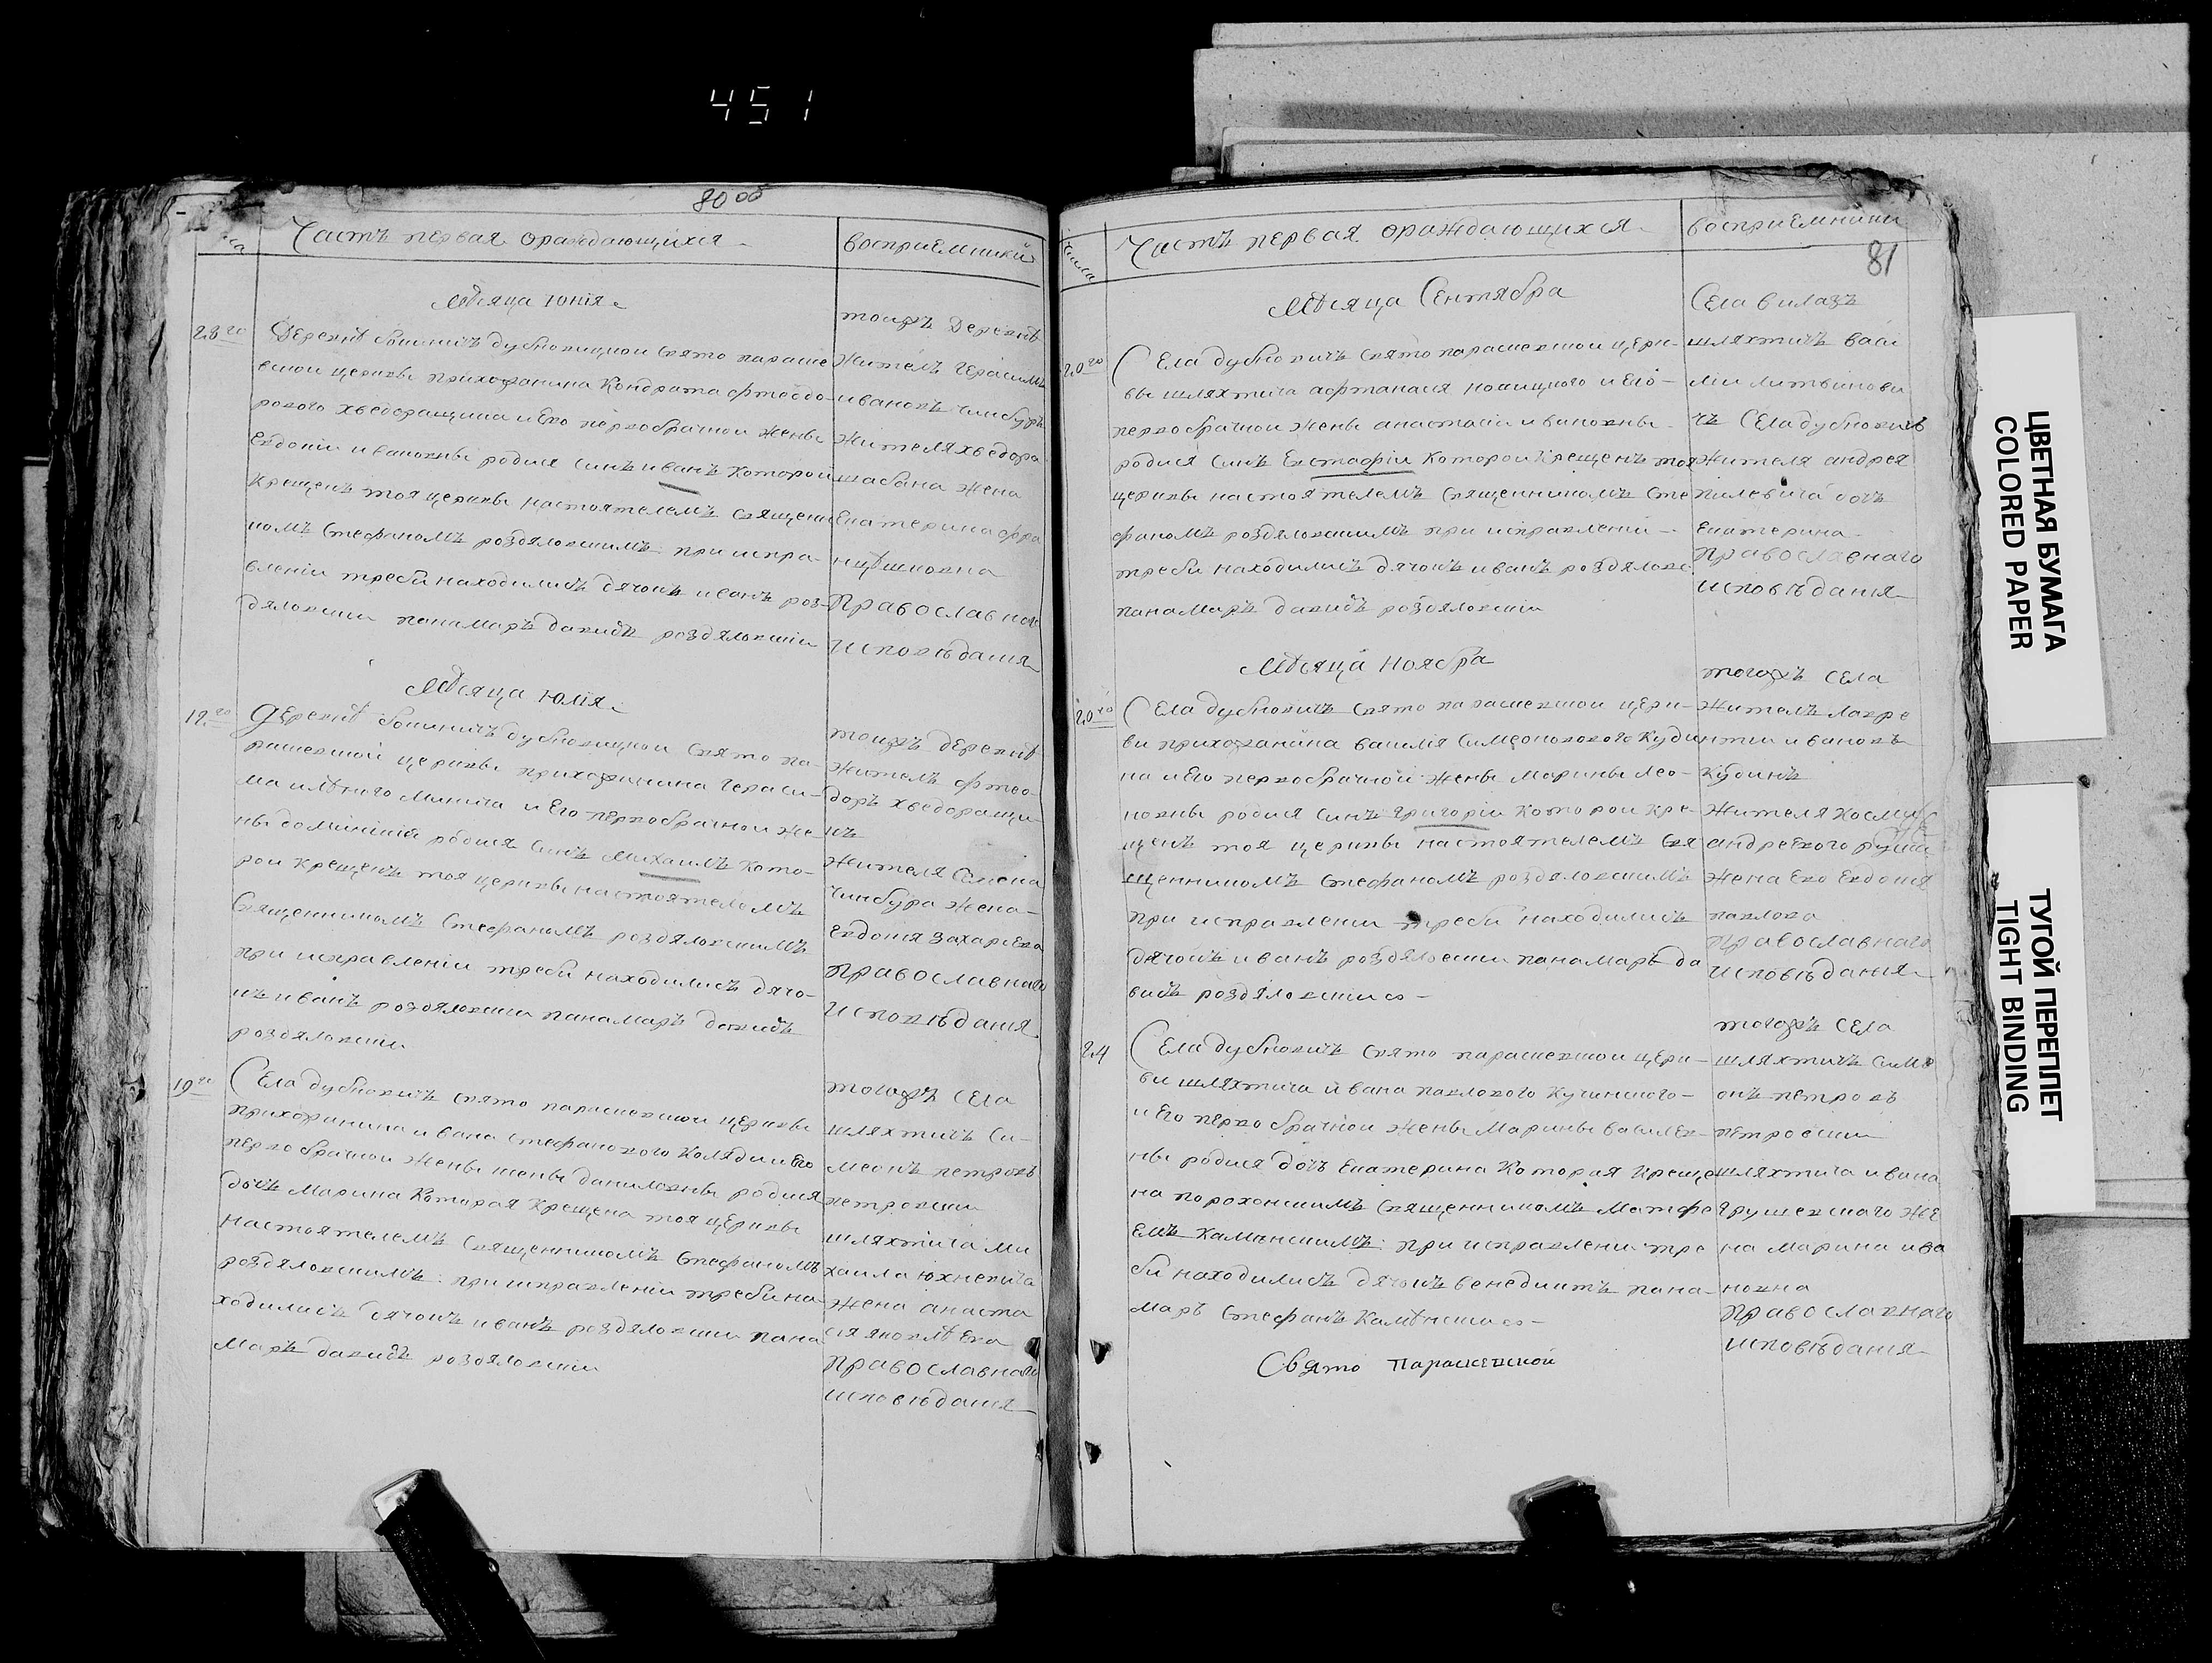 451
80 об
Часть первая ораждающихся
восприемники
Мѣсяца юнія
28го
Деревнѣ дубновицкои свято параше
вскои церкви прихожанина Кондрата фтеодо-
рового хведоращика и Его первобрачнои жены
Евдокіи ивановны родися синъ иванъ Которои
крещенъ тоя церкви настоятелемъ священи
комъ Стефаномъ роздяловскимъ при испра-
вленіи треби находились дячокъ иванъ роз-
дяловски панамарь давидъ роздяловскіи
тоижъ Деревнѣ
Житель Герасимъ
ивановъ
Жителя хведора
шабана жена
Екатерина фра
нцѣшковна
Православног
исповѣдания
Мѣсяца юлія
12го
Деревнѣ дубновицкои свято па-
рашевской церкви прихожанина Гераси-
ма и Его первобрачнои же
ны родися Синъ Михаилъ Кото-
рои крещенъ тоя церкви настоятелемъ
Священникомъ Стефаномъ роздяловскимъ
при исправленіи треби находились дячо-
къ иванъ роздяловски панамарь давидъ
роздяловскіи
тоижъ деревнѣ
Житель фтео-
доръ хведоращи-
къ
Жителя Семена
жена
Евдокія Захарiева
православнаго
исповѣдания
19го
Села дубновичъ свято парашевскои церкви
прихожанина ивана Стефанового Коляди и Его
первобрачнои жены даниловны родися
дочь Марина Которая Крещена тоя церкви
настоятелемъ священникомъ Стефаномъ
роздяловскимъ при исправленіи треби на
ходились дячокъ иванъ роздяловски пана
марь давидъ роздяловскіи
тогожъ Села
шляхтичъ Си-
меонъ петровъ
петровски
шляхтича Ми
хаила юхневича
жена анаста
сія яковлѣва
Православнаго
исповѣдания
Числа
Часть первая ораждающихся
восприемники
81
Мѣсяца Сентября
20го
Села дубновичъ свято парашевскои церк-
вы шляхтича афтанасія и Его
первобрачнои жены анастасіи ивановны
родися Синъ Евстафіи Которои Крещенъ тоя
церкви настоятелемъ священникомъ Сте
фаномъ роздяловскимъ при исправленіи
треби находились дячокъ иванъ роздялове
панамарь давидъ роздяловскіи
Села вилазъ
шляхтичъ васи
ліи литвинови
чъ Села дубновичъ
Жителя андрея
дочъ
Екатерина
Православнаго
исповѣдания
Мѣсяца Ноября
20го
Села дубновичъ свято парашевскои церк-
ви прихожанина василія Симеонового Куди
на и Его первобрачной жены Марины Лео-
новны родися синъ григоріи Которои кре-
щенъ тоя церкви настоятелемъ свя
щенникомъ Стефаномъ роздяловскимъ
при исправлении треби находились
дячокъ иванъ роздяловски панамарь да
видъ роздяловски
тогожъ Села
Житель лавре
нтіи ивановъ
Кудинъ
Жителя Космы
андреевого
жена Его Евдокія
павлова
православнаго
исповѣдания
24
Села дубновичъ свято парашевскои церк-
ви шляхтича ивана павлового Кучинского
и Его первобрачнои жены Марины василев-
ны родися дочъ Екатерина Которая Креще
на порохонскимъ священникомъ Матфе
емъ Каменскимъ при исправлени тре
би находились дячокъ венедиктъ пана-
маръ Стефанъ Камѣнски
тогожъ Села
шляхтичъ Симе
онъ петровъ
петровски
шляхтича ивана
Грушевскаго же
на Марина ива
новна
православнаго
исповѣдания
Свято Параскевской
ЦВЕТНАЯ БУМАГА
COLORED PAPER
ТУГОЙ ПЕРЕПЛЕТ
TIGHT BINDING